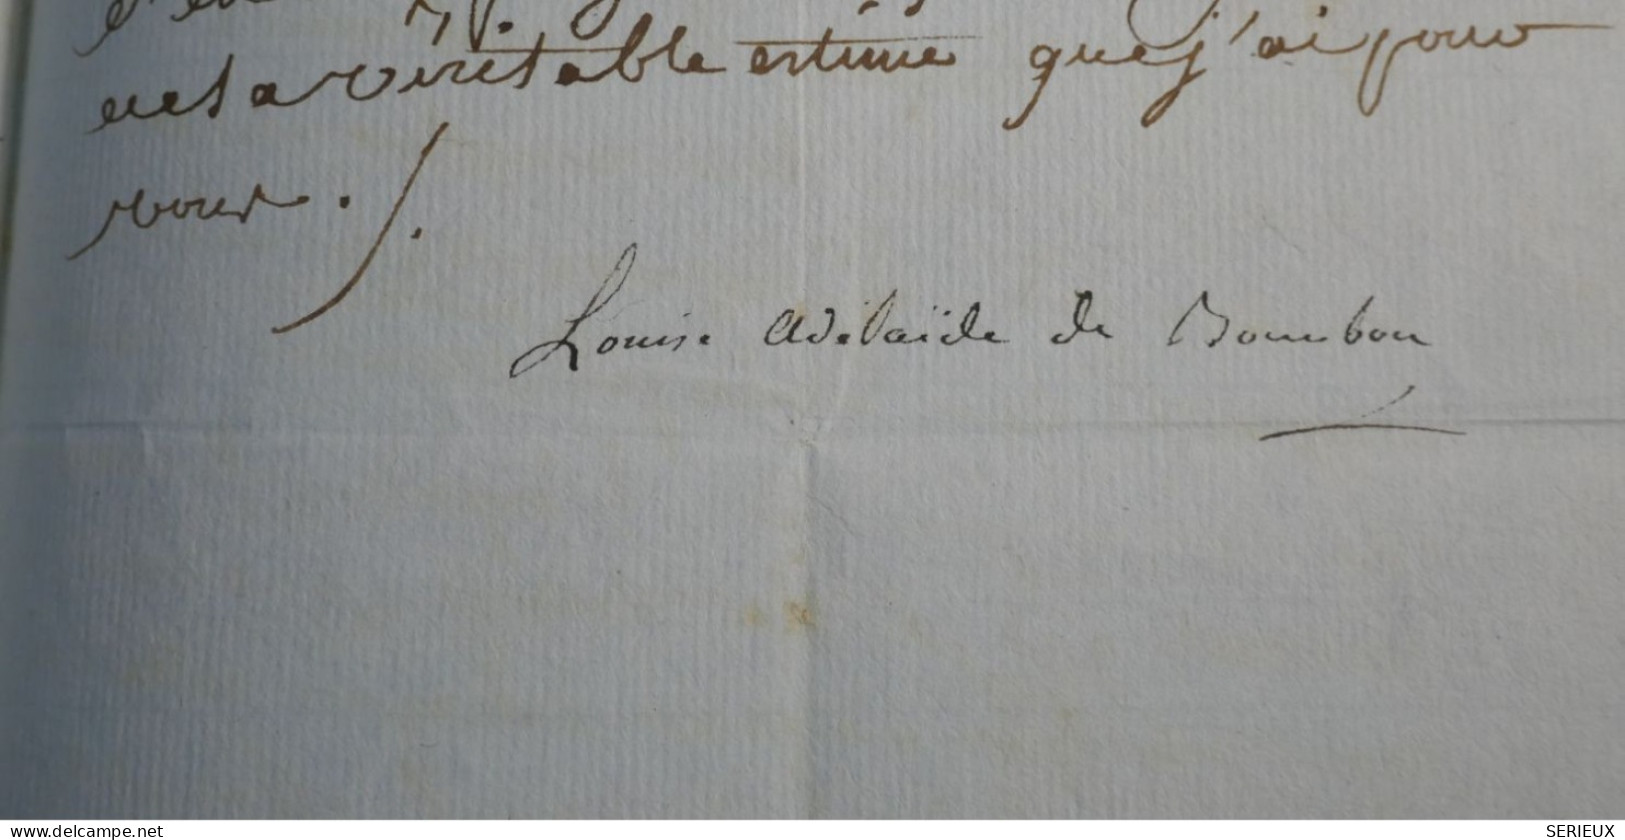 et la véritable estime que j'ai pour
vous ./.
Louise Adélaïde de Bourbon
www.delcampe.net
SERIEUX